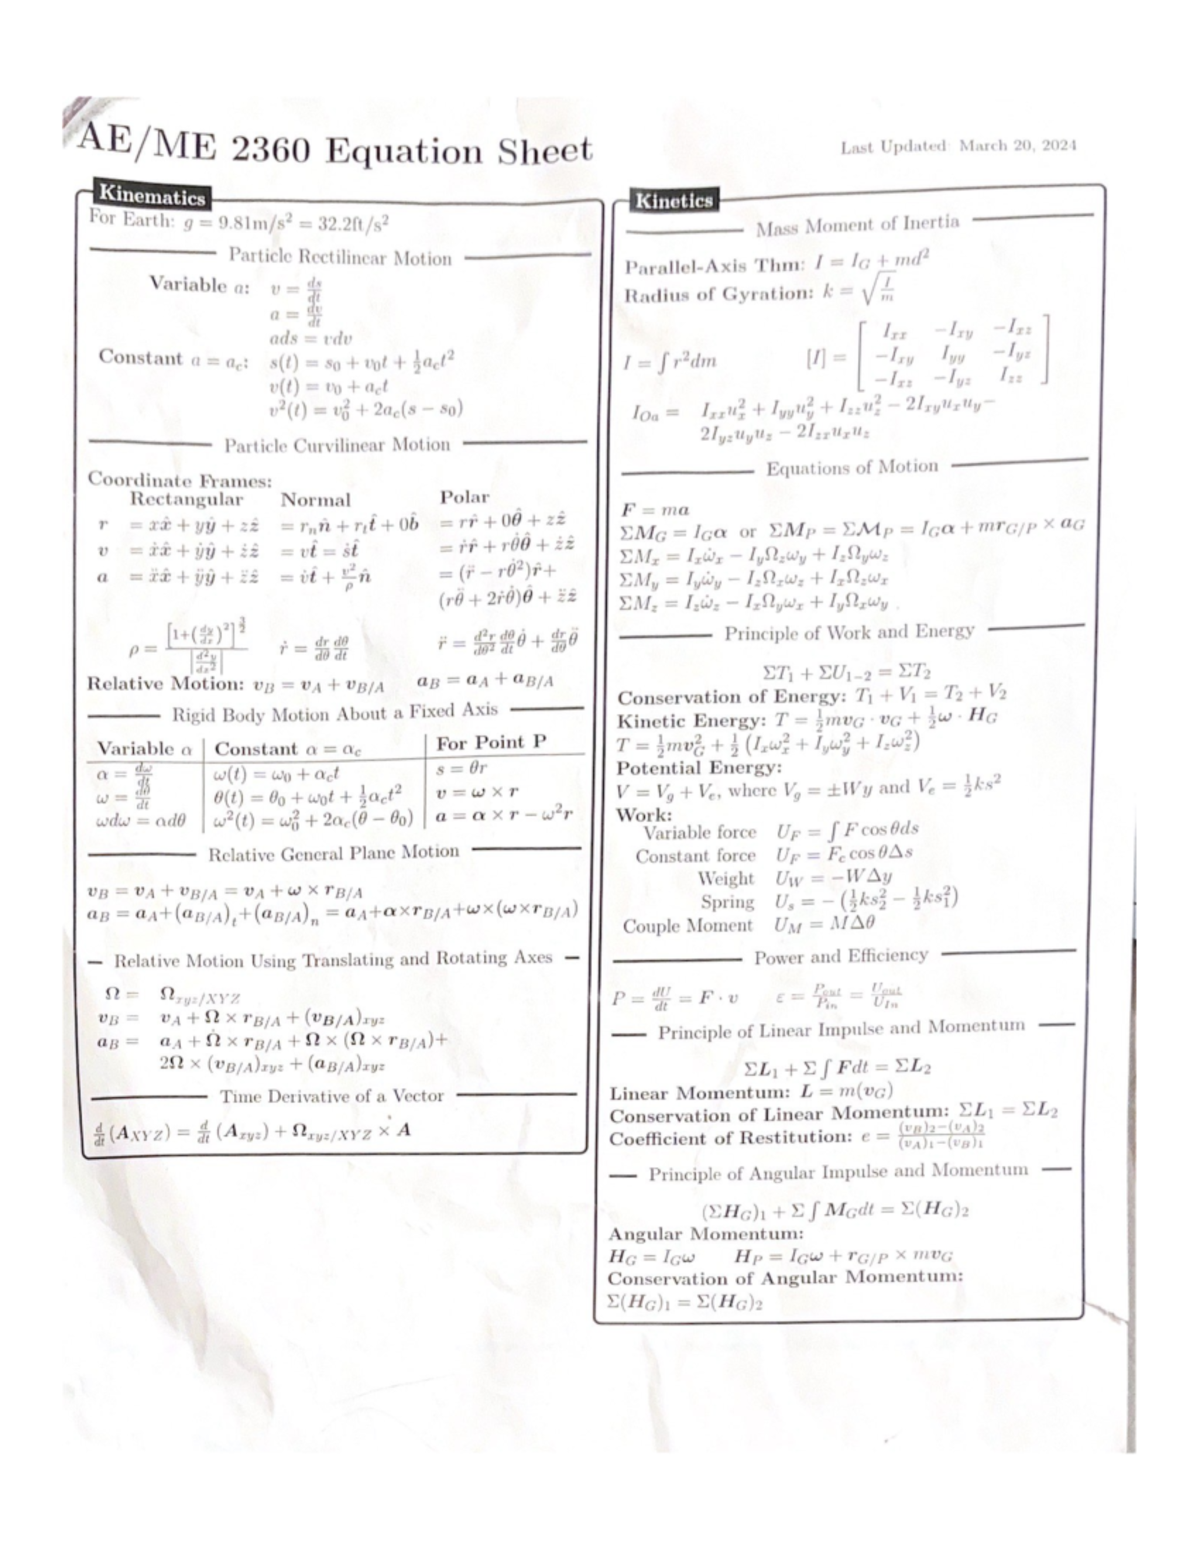 AE/ME 2360 Equation Sheet
Last Updated: March 20, 2024
Kinematics
For Earth: g = 9.81m/s² = 32.2ft/s²
Particle Rectilinear Motion
Variable a: v = ds/dt
a = dv/dt
ads = vdv
Constant a = a_c: s(t) = s₀ + v₀t + ½a_ct²
v(t) = v₀ + a_ct
v²(t) = v₀² + 2a_c(s − s₀)
Particle Curvilinear Motion
Coordinate Frames:
Rectangular Normal Polar
r = xx̂ + yŷ + zẑ = r_nn̂ + r_tt̂ + 0b̂ = rr̂ + 0θ̂ + zẑ
v = ẋx̂ + ẏŷ + żẑ = vt̂ = ṡt̂ = ṙr̂ + rθ̇θ̂ + żẑ
a = ẍx̂ + ÿŷ + z̈ẑ = v̇t̂ + v²/ρ n̂ = (r̈ − rθ̇²)r̂+
(rθ̈ + 2ṙθ̇)θ̂ + z̈ẑ
ρ = [1+(dy/dx)²]^(3/2) / |d²y/dx²| ṙ = dr/dθ dθ/dt r̈ = d²r/dθ² dθ/dt θ̇ + dr/dθ θ̈
Relative Motion: v_B = v_A + v_B/A a_B = a_A + a_B/A
Rigid Body Motion About a Fixed Axis
Variable α Constant α = α_c For Point P
α = dω/dt ω(t) = ω₀ + α_ct s = θr
ω = dθ/dt θ(t) = θ₀ + ω₀t + ½α_ct² v = ω × r
ωdω = αdθ ω²(t) = ω₀² + 2α_c(θ − θ₀) a = α × r − ω²r
Relative General Plane Motion
v_B = v_A + v_B/A = v_A + ω × r_B/A
a_B = a_A+(a_B/A)_t+(a_B/A)_n = a_A+α×r_B/A+ω×(ω×r_B/A)
Relative Motion Using Translating and Rotating Axes
Ω = Ω_xyz/XYZ
v_B = v_A + Ω × r_B/A + (v_B/A)_xyz
a_B = a_A + Ω̇ × r_B/A + Ω × (Ω × r_B/A)+
2Ω × (v_B/A)_xyz + (a_B/A)_xyz
Time Derivative of a Vector
d/dt (A_XYZ) = d/dt (A_xyz) + Ω_xyz/XYZ × A
Kinetics
Mass Moment of Inertia
Parallel-Axis Thm: I = I_G + md²
Radius of Gyration: k = √(I/m)
I = ∫ r²dm [I] = [ I_xx −I_xy −I_xz
−I_xy I_yy −I_yz
−I_xz −I_yz I_zz ]
I_Oa = I_xxu_x² + I_yyu_y² + I_zzu_z² − 2I_xyu_xu_y−
2I_yzu_yu_z − 2I_zxu_xu_z
Equations of Motion
F = ma
ΣM_G = I_Gα or ΣM_P = Σℳ_P = I_Gα + mr_G/P × a_G
ΣM_x = I_xω̇_x − I_yΩ_zω_y + I_zΩ_yω_z
ΣM_y = I_yω̇_y − I_zΩ_xω_z + I_xΩ_zω_x
ΣM_z = I_zω̇_z − I_xΩ_yω_x + I_yΩ_xω_y
Principle of Work and Energy
ΣT₁ + ΣU₁₋₂ = ΣT₂
Conservation of Energy: T₁ + V₁ = T₂ + V₂
Kinetic Energy: T = ½mv_G · v_G + ½ω · H_G
T = ½mv_G² + ½ (I_xω_x² + I_yω_y² + I_zω_z²)
Potential Energy:
V = V_g + V_e, where V_g = ±Wy and V_e = ½ks²
Work:
Variable force U_F = ∫ F cos θds
Constant force U_F = F_c cos θΔs
Weight U_W = −WΔy
Spring U_s = − (½ks₂² − ½ks₁²)
Couple Moment U_M = MΔθ
Power and Efficiency
P = dU/dt = F · v ε = P_out/P_in = U_out/U_in
Principle of Linear Impulse and Momentum
ΣL₁ + Σ ∫ Fdt = ΣL₂
Linear Momentum: L = m(v_G)
Conservation of Linear Momentum: ΣL₁ = ΣL₂
Coefficient of Restitution: e = (v_B)₂−(v_A)₂ / (v_A)₁−(v_B)₁
Principle of Angular Impulse and Momentum
(ΣH_G)₁ + Σ ∫ M_Gdt = Σ(H_G)₂
Angular Momentum:
H_G = I_Gω H_P = I_Gω + r_G/P × mv_G
Conservation of Angular Momentum:
Σ(H_G)₁ = Σ(H_G)₂